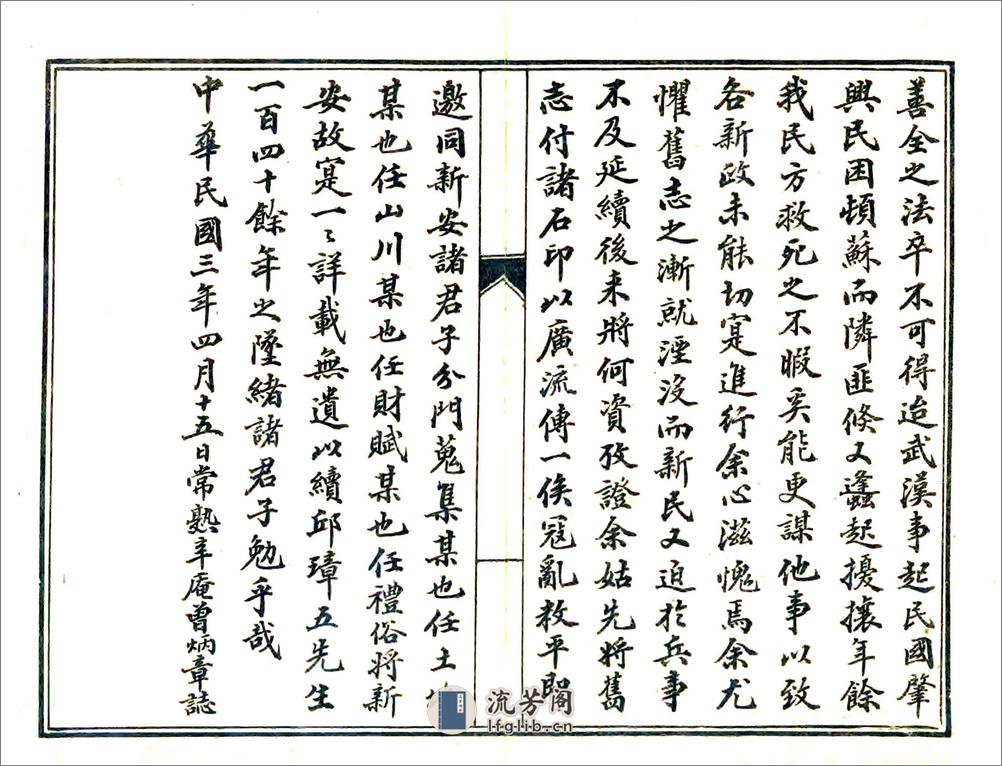 善全之法卒不可得迨武漢事起民國肇
興民困頓蘇而隣匪倏又蠭起擾攘年餘
我民方救死之不暇奚能更謀他事以致
各新政未能切寔進行余心滋愧焉余尤
懼舊志之漸就湮沒而新民又迫於兵事
不及延續後来將何資攷證余姑先將舊
志付諸石印以廣流傳一俟冦亂敉平即
邀同新安諸君子分門蒐集某也任土
某也任山川某也任財賦某也任禮俗將新
安故寔一〻詳載無遺以續邱璋五先生
一百四十餘年之墜緒諸君子勉乎哉
中華民國三年四月十五日常熟辛庵曾炳章誌
流芳阁
lfglib.cn